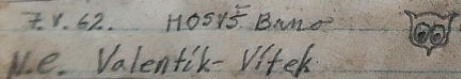 7.V.62. HOSYŠ Brno
N.e. Valentík - Vítek